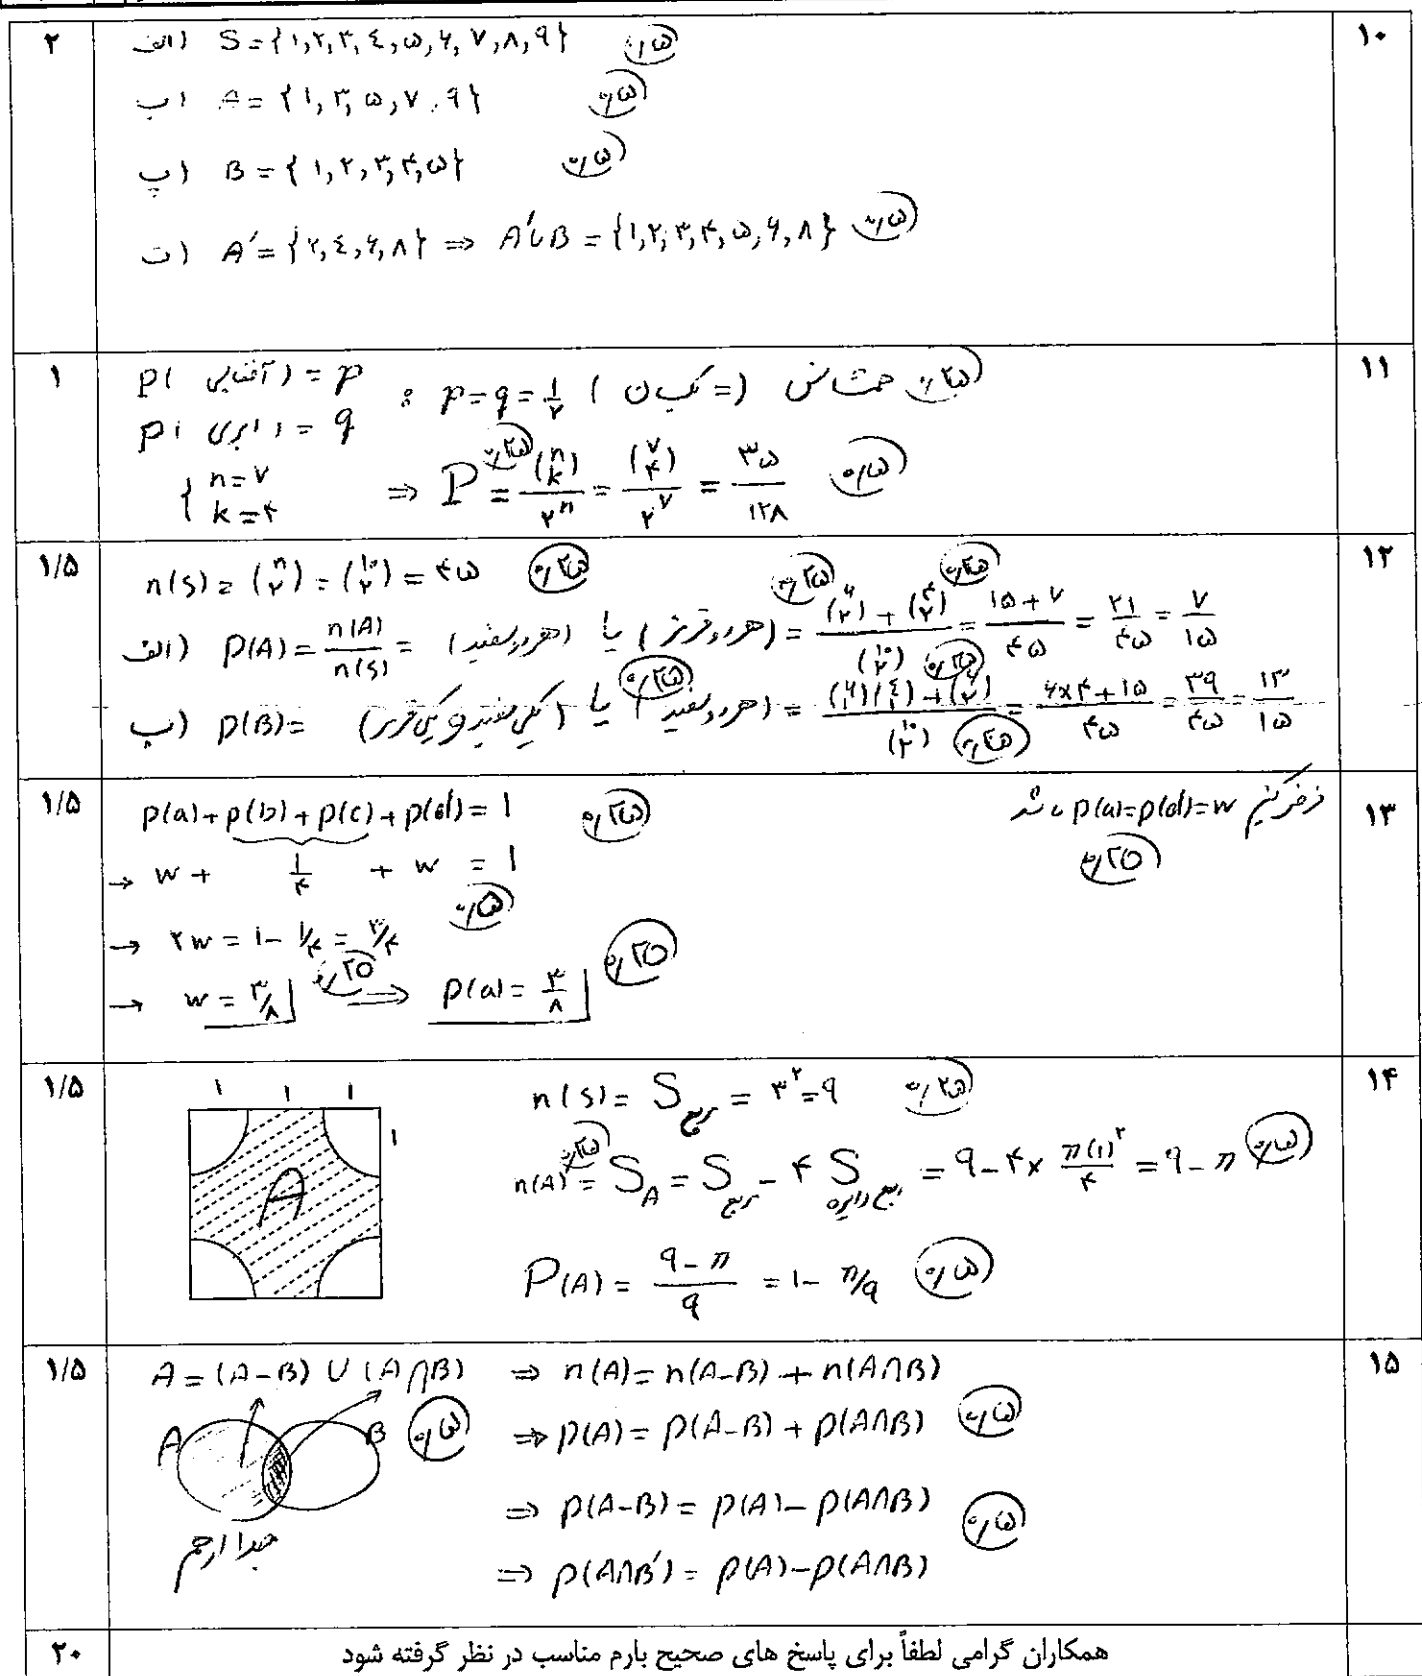 ۱۰
الف) S={۱,۲,۳,٤,۵,۶,۷,۸,۹} ۰/۵
۲
ب) A={۱,۳,۵,۷,۹} ۰/۵
پ) B={۱,۲,۳,۴,۵} ۰/۵
ت) A′={۲,٤,۶,۸} ⇒ A′∪B={۱,۲,۳,۴,۵,۶,۸} ۰/۵
۱۱
P( آفتابی )=p : p=q=۱/۲ ( یکسان =) شانس ۰/۲۵
۱
P( ابری )=q
{n=۷ k=۴ ⇒ P ۰/۲۵ = (n k)/۲^n = (۷ ۴)/۲^۷ = ۳۵/۱۲۸ ۰/۵
۱۲
n(s)=(n ۲)=(۱۰ ۲)=۴۵ ۰/۲۵
۱/۵
الف) P(A)=n(A)/n(s)= (هر دو سفید) یا (هر دو قرمز) = ((۶ ۲)+(۴ ۲))/(۱۰ ۲) = (۱۵+۷)/۴۵ = ۲۱/۴۵ = ۷/۱۵ ۰/۲۵ ۰/۲۵
ب) P(B)= (یکی سفید و یکی قرمز) یا (هر دو سفید) = ((۶ ۱)(٤ ۱)+(۶ ۲))/(۱۰ ۲) = (۶×۴+۱۵)/۴۵ = ۳۹/۴۵ = ۱۳/۱۵ ۰/۲۵ ۰/۲۵ ۰/۲۵
۱۳
فرض کنیم p(a)=p(d)=w باشد ۰/۲۵
p(a)+p(b)+p(c)+p(d)=1 ۰/۲۵
۱/۵
→ w + 1/۴ + w = 1
→ ۲w = ۱-۱/۴ = ۳/۴ ۰/۵
→ w=۳/۸ ۰/۲۵ ⇒ p(a)=۳/۸ ۰/۲۵
۱۴
n(s)=S مربع = ۳^۲=۹ ۰/۲۵
۱/۵
۱ ۱ ۱
۱
A
n(A)= ۰/۲۵ S_A = S مربع - ۴ S ربع دایره = ۹-۴×π(۱)^۲/۴ = ۹-π ۰/۵
P(A)= (۹-π)/۹ = ۱- π/۹ ۰/۵
۱۵
A=(A-B)∪(A∩B) ⇒ n(A)=n(A-B)+n(A∩B)
۱/۵
A B ۰/۵ ⇒ p(A)=p(A-B)+p(A∩B) ۰/۵
⇒ p(A-B)=p(A)-p(A∩B) ۰/۵
جدا از هم
⇒ p(A∩B′)=p(A)-p(A∩B)
همکاران گرامی لطفاً برای پاسخ های صحیح بارم مناسب در نظر گرفته شود
۲۰